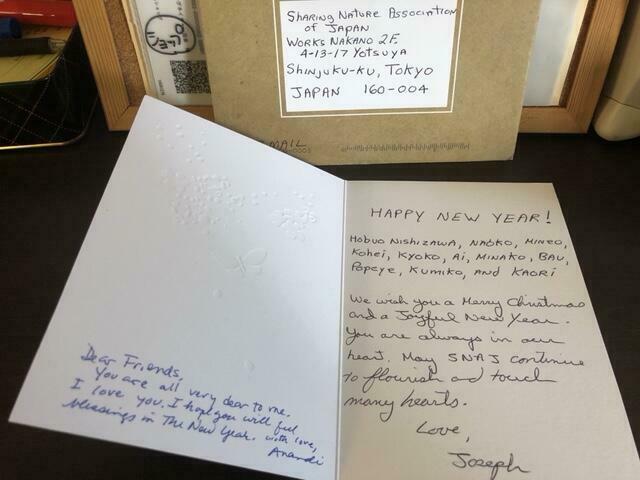 Sharing Nature Association
of Japan
Works Nakano 2F
4-13-17 Yotsuya
Shinjuku-ku, Tokyo
Japan 160-004
MAIL
Dear Friends,
You are all very dear to me.
I love you. I hope you will feel
blessings in The New Year. with love,
Anandi
HAPPY NEW YEAR!
Hobuo Nishizawa, Naoko, Mineo,
Kohei, Kyoko, Ai, Minako, Bau,
Popeye, Kumiko, and Kaori
We wish you a Merry Christmas
and a Joyful New Year.
You are always in our
heart. May SNAJ continue
to flourish and touch
many hearts.
Love,
Joseph